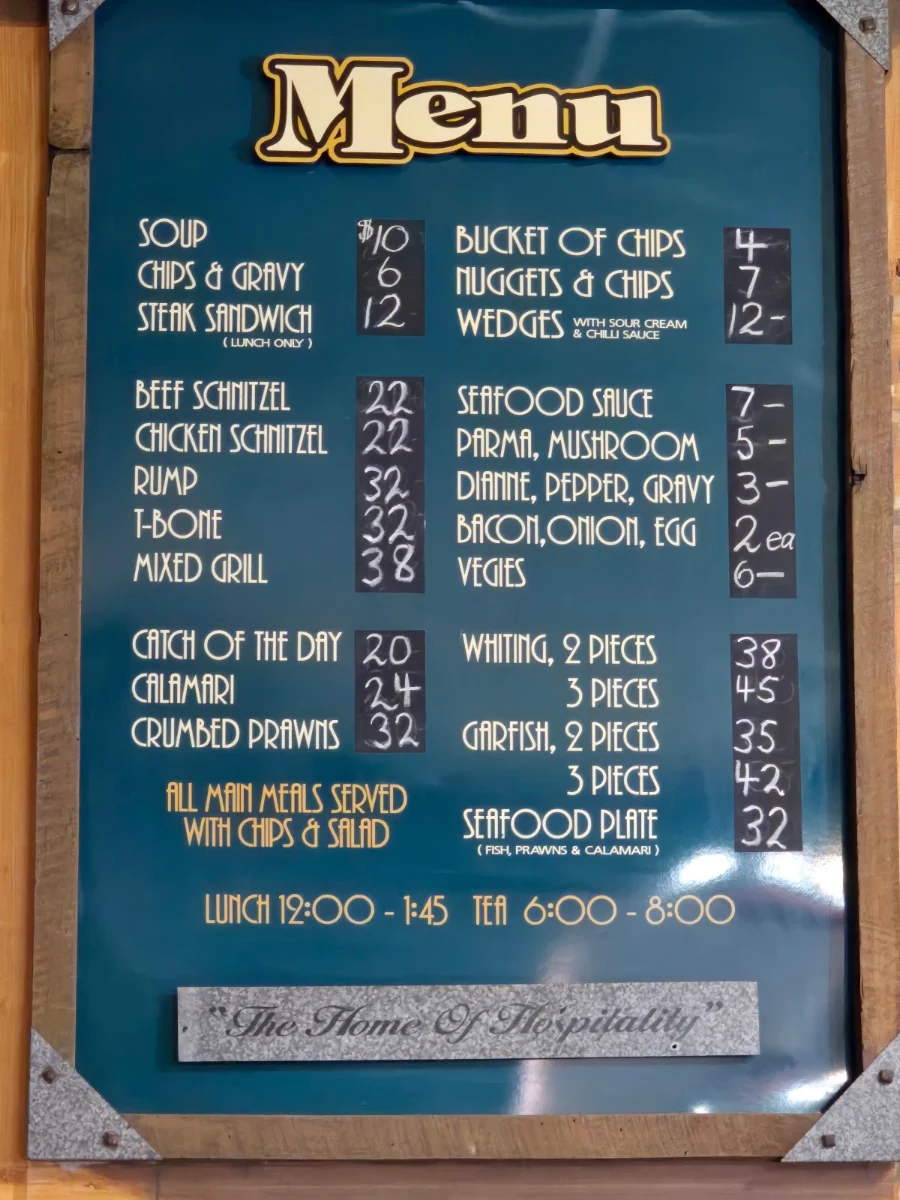 Menu
SOUP $10
CHIPS & GRAVY 6
STEAK SANDWICH 12
( LUNCH ONLY )
BUCKET OF CHIPS 4
NUGGETS & CHIPS 7
WEDGES WITH SOUR CREAM & CHILLI SAUCE 12-
BEEF SCHNITZEL 22
CHICKEN SCHNITZEL 22
RUMP 32
T-BONE 32
MIXED GRILL 38
SEAFOOD SAUCE 7-
PARMA, MUSHROOM 5-
DIANNE, PEPPER, GRAVY 3-
BACON,ONION, EGG 2 ea
VEGIES 6-
CATCH OF THE DAY 20
CALAMARI 24
CRUMBED PRAWNS 32
WHITING, 2 PIECES 38
3 PIECES 45
GARFISH, 2 PIECES 35
3 PIECES 42
SEAFOOD PLATE 32
( FISH, PRAWNS & CALAMARI )
ALL MAIN MEALS SERVED
WITH CHIPS & SALAD
LUNCH 12:00 - 1:45 TEA 6:00 - 8:00
"The Home Of Hospitality"